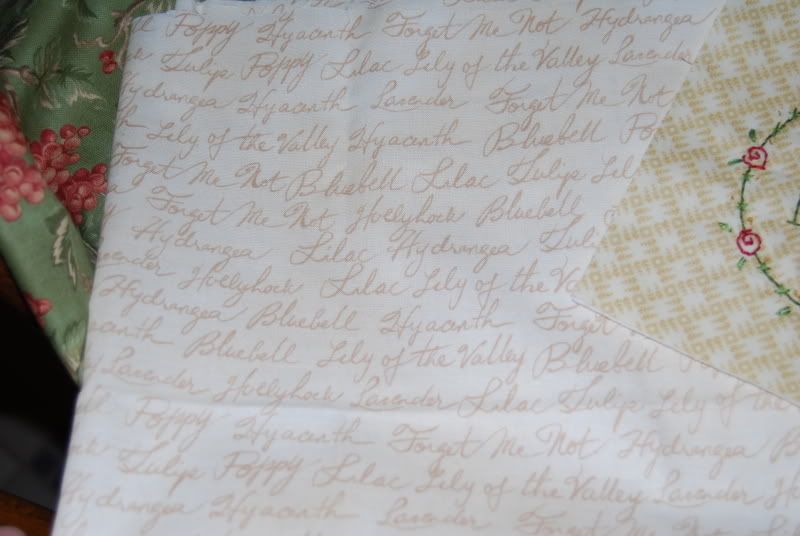 Poppy Hyacinth Forget Me Not Hydrangea
Tulip Poppy Lilac Lily of the Valley Lavender
Hydrangea Hyacinth Lavender Forget Me Not
Lily of the Valley Hyacinth Bluebell
Forget Me Not Bluebell Lilac Tulip
Forget Me Not Hollyhock Bluebell
Hydrangea Lilac Hydrangea
Hollyhock Lilac Lily of the
Hydrangea Bluebell Hyacinth Forget
Bluebell Lily of the Valley Bluebell
Lavender Hollyhock Lavender Lilac Tulip Lily of the
Poppy Hyacinth Forget Me Not Hydrangea
Tulip Poppy Lilac Lily of the Valley Lavender
Hydrangea Hyacinth Lavender Forget Me Not